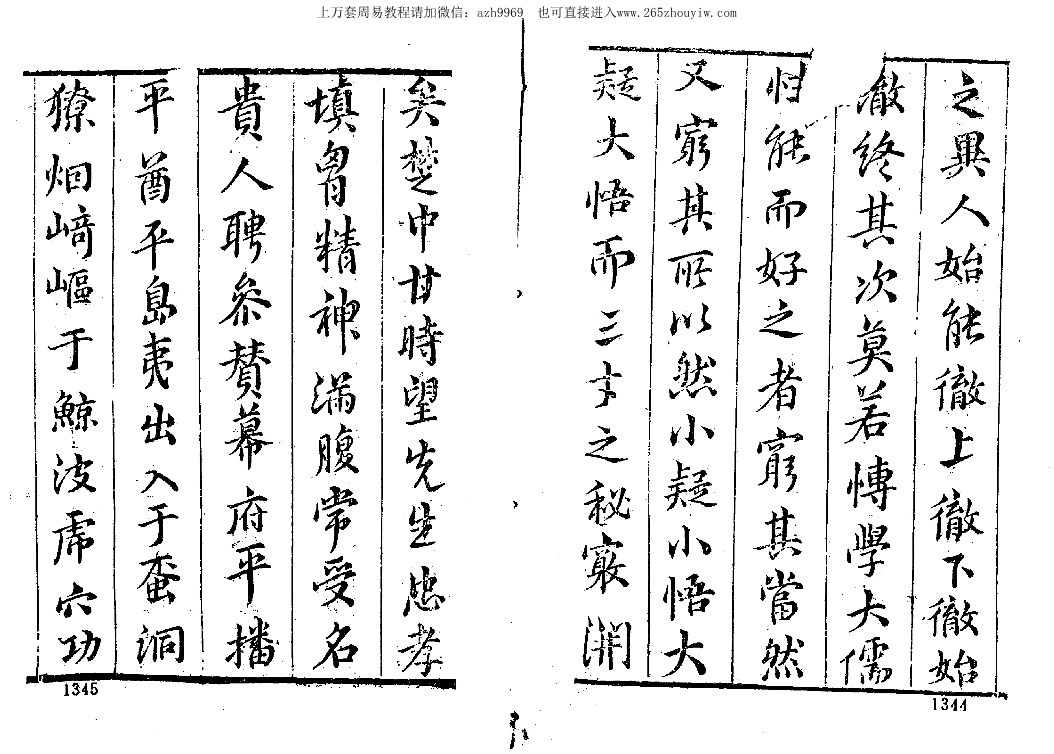 上万套周易教程请加微信：azh9969　也可直接进入www.265zhouyiw.com
之異人始能徹上徹下徹始
徹終其次莫若博學大儒
歸能而好之者窮其當然
又窮其所以然小疑小悟大
疑大悟而三才之秘窮淵
1344
矣楚中甘時望先生忠孝
填胷精神滿腹常受名
貴人聘參贊幕府平播
平酋平島夷出入于蛮洞
獠烟﨑嶇于鯨波虎穴功
1345